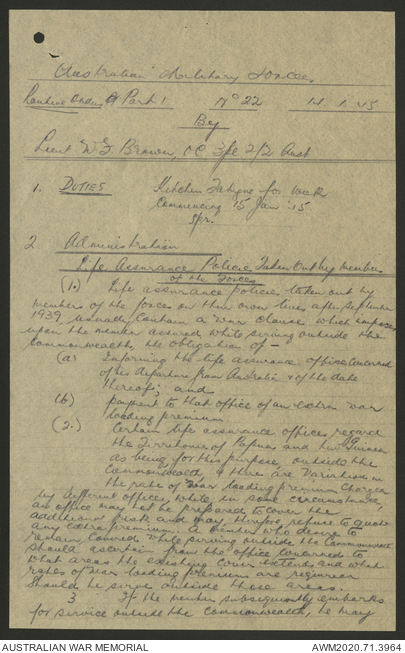 Australian Military Forces
Routine Orders Part 1 No 22 14.1.45
By
Lieut W.F. Brown, OC 2/2 Aust
1. DUTIES Kitchen Fatigue for week
Commencing 15 Jan '45
2 Administration
Life Assurance Policies Taken Out by members
of the Forces
(1.) Life assurance policies taken out by
members of the forces on their own lives after September
1939, usually contain a war clause which imposes
upon the member assured while serving outside the
Commonwealth the obligation of -
(a) Informing the life assurance office concerned
of his departure from Australia & of the date
thereof; and
(b) payment to that office of an extra war
loading premium
(2.) Certain life assurance offices regard
the Territories of Papua and New Guinea
as being for this purpose, outside the
Commonwealth & there are Variations in
the rate of war loading premium charged
by different offices, while, in some circumstances,
an office may not be prepared to cover the
additional risk and may, therefore, refuse to quote
any extra premium. A member who desires to
remain covered while serving outside the Commonwealth
should ascertain from the office concerned to
what areas the existing cover extends and what
rates of war loading premium are required
should he serve outside these areas.
3 If the member subsequently embarks
for service outside the Commonwealth, he may
AUSTRALIAN WAR MEMORIAL AWM2020.71.3964